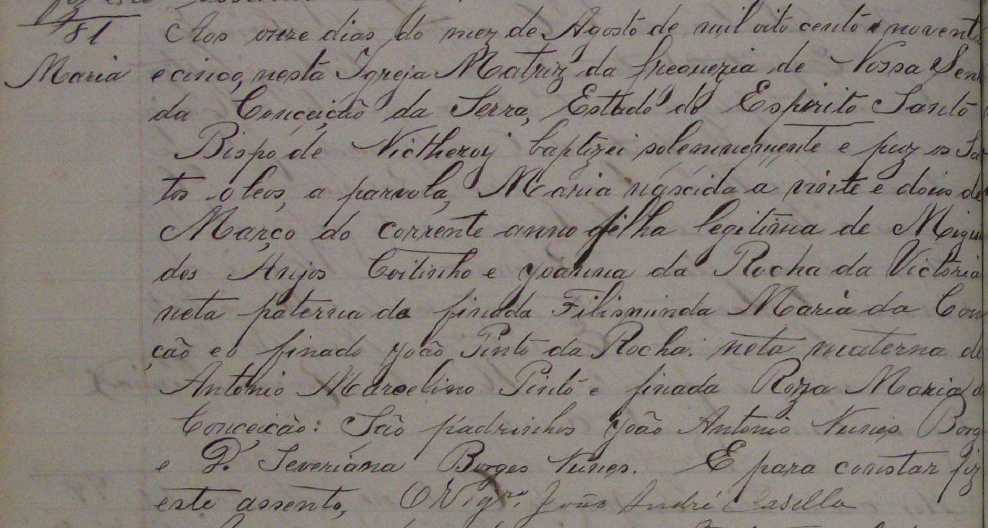 81
Maria
Aos onze dias do mez de Agosto de mil oito cento e noventa
e cinco, nesta Igreja Matriz da freguezia de Nossa Sen
da Conceição da Serra, Estado do Espirito Santo
Bispo de Nictheroy baptizei solemnemente e puz os Sa
tos oleos, a parvola, Maria nascida a vinte e dois de
Março do corrente anno filha legitima de Migu
dos Anjos Coitinho e Joanna da Rocha da Victoria
neta paterna da finada Filisminda Maria da Con
ção e o finado João Pinto da Rocha: neta materna de
Antonio Marcelino Pinto e finada Roza Maria d
Conceição: São padrinhos João Antonio Nunes Borg
e D. Severiana Borges Nunes. E para constar fiz
este assento, O Vigr.º João André Casella